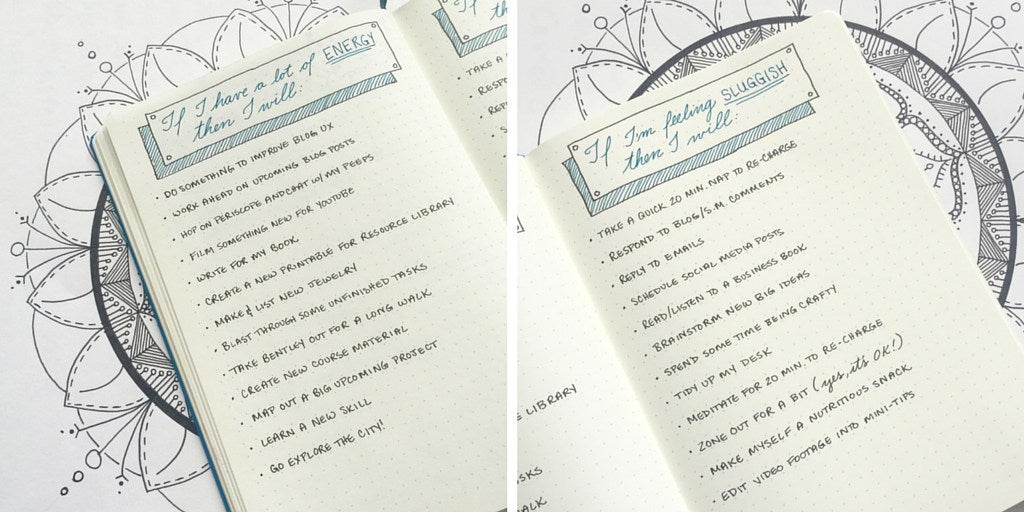 If I have a lot of ENERGY
then I will:
• DO SOMETHING TO IMPROVE BLOG UX
• WORK AHEAD ON UPCOMING BLOG POSTS
• HOP ON PERISCOPE AND CHAT W/ MY PEEPS
• FILM SOMETHING NEW FOR YOUTUBE
• WRITE FOR MY BOOK
• CREATE A NEW PRINTABLE FOR RESOURCE LIBRARY
• MAKE & LIST NEW JEWELRY
• BLAST THROUGH SOME UNFINISHED TASKS
• TAKE BENTLEY OUT FOR A LONG WALK
• CREATE NEW COURSE MATERIAL
• MAP OUT A BIG UPCOMING PROJECT
• LEARN A NEW SKILL
• GO EXPLORE THE CITY!
If
th
• TAKE A
RESP
REP
S
If I'm feeling SLUGGISH
then I will:
• TAKE A QUICK 20 MIN. NAP TO RE-CHARGE
• RESPOND TO BLOG/S.M. COMMENTS
• REPLY TO EMAILS
• SCHEDULE SOCIAL MEDIA POSTS
• READ/LISTEN TO A BUSINESS BOOK
• BRAINSTORM NEW BIG IDEAS
• SPEND SOME TIME BEING CRAFTY
• TIDY UP MY DESK
• MEDITATE FOR 20 MIN. TO RE-CHARGE
• ZONE OUT FOR A BIT (yes, it's OK!)
• MAKE MYSELF A NUTRITIOUS SNACK
• EDIT VIDEO FOOTAGE INTO MINI-TIPS
E LIBRARY
ASKS
ALK